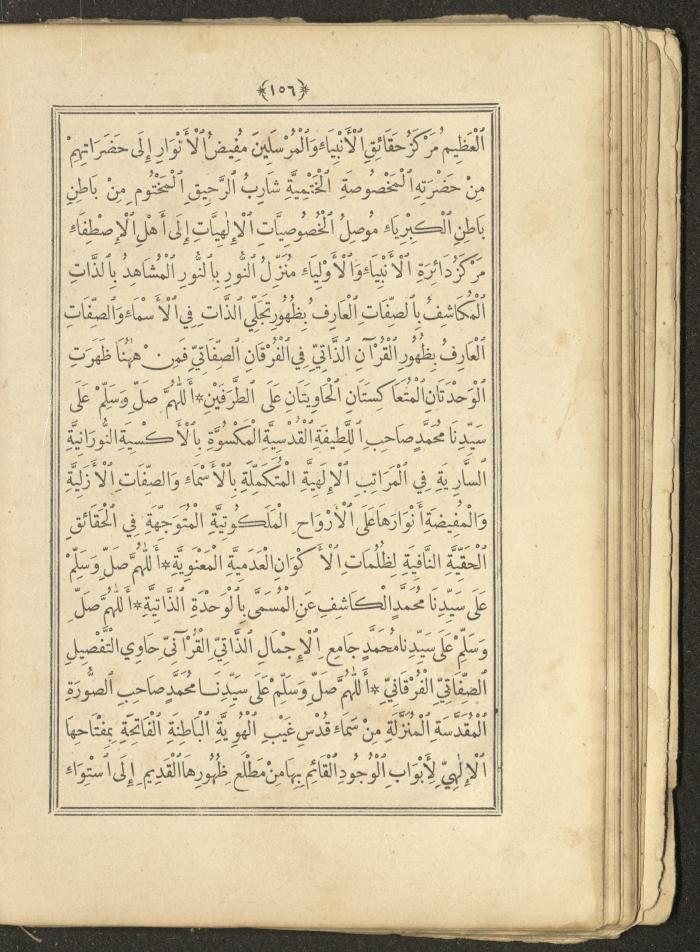 ﴿١٥٦﴾
ٱلْعَظِيمُ مَرْكَزُ حَقَائِقِ ٱلْأَنْبِيَاءِ وَٱلْمُرْسَلِينَ مُفِيضُ ٱلْأَنْوَارِ إِلَى حَضَرَاتِهِمْ
مِنْ حَضْرَتِهِ ٱلْمَخْصُوصَةِ ٱلْخَتْمِيَّةِ شَارِبُ ٱلرَّحِيقِ ٱلْمَخْتُومِ مِنْ بَاطِنِ
بَاطِنِ ٱلْكِبْرِيَاءِ مُوصِلُ ٱلْخُصُوصِيَّاتِ ٱلْإِلٰهِيَّاتِ إِلَى أَهْلِ ٱلْإِصْطِفَاءِ
مَرْكَزُ دَائِرَةِ ٱلْأَنْبِيَاءِ وَٱلْأَوْلِيَاءِ مُنَزِّلُ ٱلنُّورِ بِٱلنُّورِ ٱلْمُشَاهِدُ بِٱلذَّاتِ
ٱلْمُكَاشِفُ بِٱلصِّفَاتِ ٱلْعَارِفُ بِظُهُورِ تَجَلِّي ٱلذَّاتِ فِي ٱلْأَسْمَاءِ وَٱلصِّفَاتِ
ٱلْعَارِفُ بِظُهُورِ ٱلْقُرْآنِ ٱلذَّاتِيِّ فِي ٱلْفُرْقَانِ ٱلصِّفَاتِيِّ فَمِنْ هٰهُنَا ظَهَرَتِ
ٱلْوَحْدَتَانِ ٱلْمُتَعَاكِسَتَانِ ٱلْحَاوِيَتَانِ عَلَى ٱلطَّرَفَيْنِ * أَللّٰهُمَّ صَلِّ وَسَلِّمْ عَلَى
سَيِّدِنَا مُحَمَّدٍ صَاحِبِ ٱللَّطِيفَةِ ٱلْقُدْسِيَّةِ ٱلْمَكْسُوَّةِ بِٱلْأَكْسِيَةِ ٱلنُّورَانِيَّةِ
ٱلسَّارِيَةِ فِي ٱلْمَرَاتِبِ ٱلْإِلٰهِيَّةِ ٱلْمُتَكَمِّلَةِ بِٱلْأَسْمَاءِ وَٱلصِّفَاتِ ٱلْأَزَلِيَّةِ
وَٱلْمُفِيضَةِ أَنْوَارَهَا عَلَى ٱلْأَرْوَاحِ ٱلْمَلَكُوتِيَّةِ ٱلْمُتَوَجِّهَةِ فِي ٱلْحَقَائِقِ
ٱلْحَقِّيَّةِ ٱلنَّافِيَةِ لِظُلُمَاتِ ٱلْأَكْوَانِ ٱلْعَدَمِيَّةِ ٱلْمَعْنَوِيَّةِ * أَللّٰهُمَّ صَلِّ وَسَلِّمْ
عَلَى سَيِّدِنَا مُحَمَّدٍ ٱلْكَاشِفِ عَنِ ٱلْمُسَمَّى بِٱلْوَحْدَةِ ٱلذَّاتِيَّةِ * أَللّٰهُمَّ صَلِّ
وَسَلِّمْ عَلَى سَيِّدِنَا مُحَمَّدٍ جَامِعِ ٱلْإِجْمَالِ ٱلذَّاتِيِّ ٱلْقُرْآنِيِّ حَاوِي ٱلتَّفْصِيلِ
ٱلصِّفَاتِيِّ ٱلْفُرْقَانِيِّ * أَللّٰهُمَّ صَلِّ وَسَلِّمْ عَلَى سَيِّدِنَا مُحَمَّدٍ صَاحِبِ ٱلصُّورَةِ
ٱلْمُقَدَّسَةِ ٱلْمُنَزَّلَةِ مِنْ سَمَاءِ قُدْسِ غَيْبِ ٱلْهُوِيَّةِ ٱلْبَاطِنَةِ ٱلْفَاتِحَةِ بِمِفْتَاحِهَا
ٱلْإِلٰهِيِّ لِأَبْوَابِ ٱلْوُجُودِ ٱلْقَائِمِ بِهَا مِنْ مَطْلَعِ ظُهُورِهَا ٱلْقَدِيمِ إِلَى ٱسْتِوَاءِ